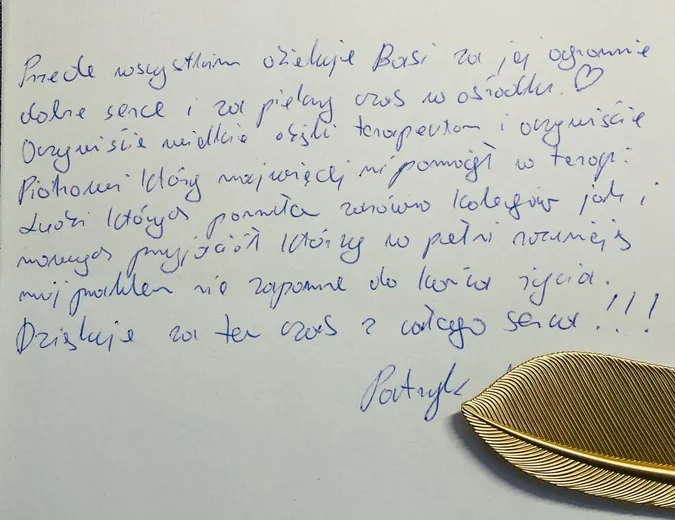 Przede wszystkim dziękuję Basi za jej ogromnie
dobre serce i za piękny czas w ośrodku. ♡
Oczywiście wielkie dzięki terapeutom i oczywiście
Piotrowi który najwięcej mi pomógł w terapi.
Ludzi których poznałem zarówno kolegów jak i
nowych przyjaciół którzy w pełni rozumieją
mój problem nie zapomnę do końca życia.
Dziękuję za ten czas z całego serca!!!
Patryk